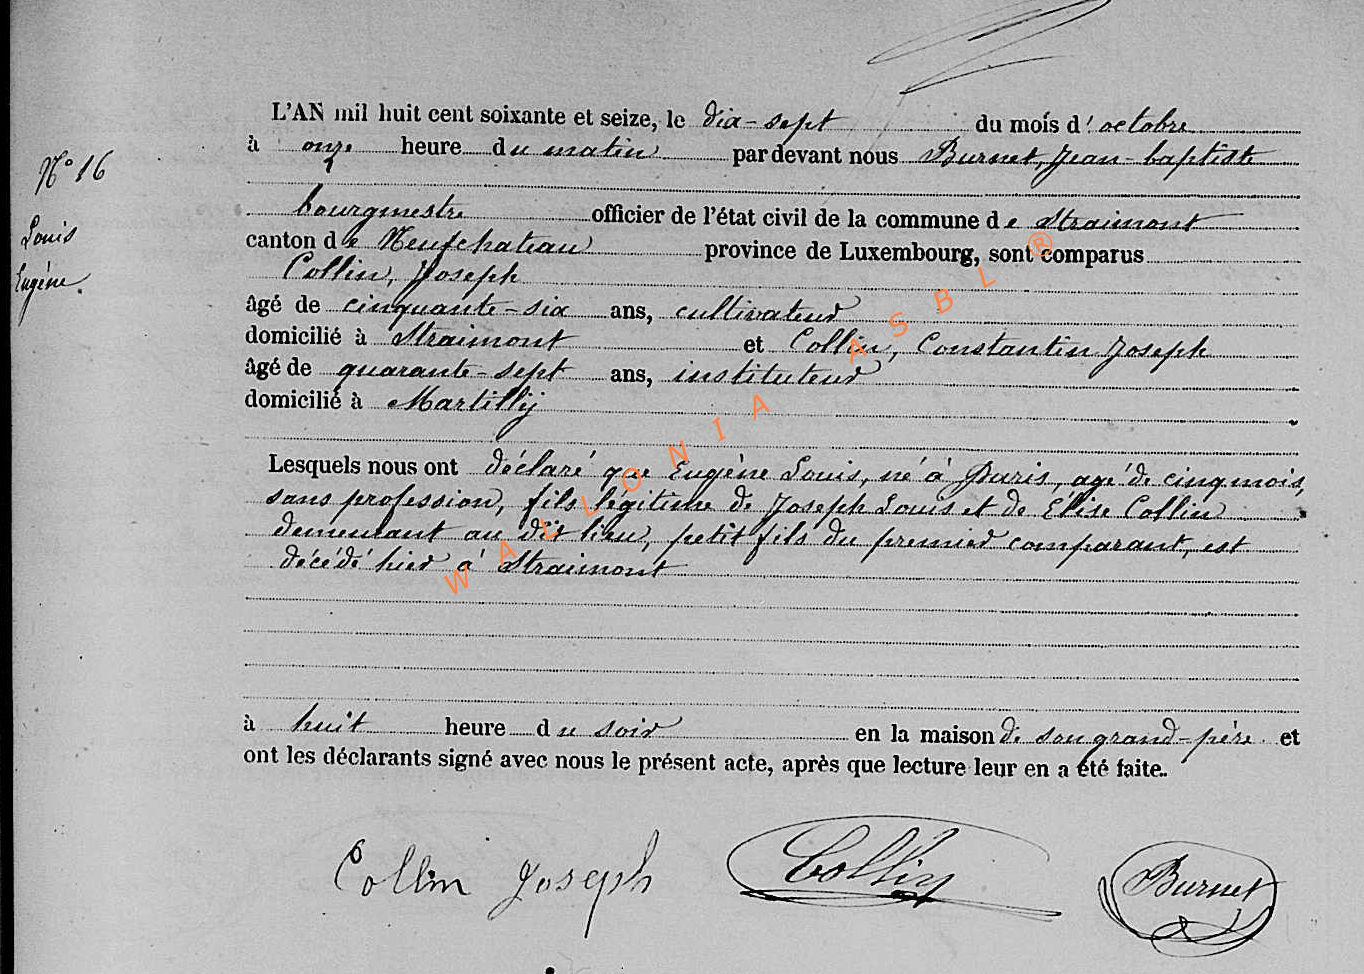 L'AN mil huit cent soixante et seize, le dix-sept du mois d'octobre
à onze heure du matin par devant nous Burnet, Jean-baptiste
N° 16
bourgmestre officier de l'état civil de la commune de Straimont
Louis
canton de Neufchateau province de Luxembourg, sont comparus
Eugène.
Collin, Joseph
âgé de cinquante-six ans, cultivateur
domicilié à Straimont et Collin, Constantin Joseph
âgé de quarante-sept ans, instituteur
domicilié à Martilly
Lesquels nous ont déclaré que Eugène Louis, né à Paris, agé de cinq mois,
sans profession, fils légitime de Joseph Louis et de Élise Collin
demeurant au dit lieu, petit fils du premier comparant, est
décédé hier à Straimont
à huit heure du soir en la maison de son grand-père et
ont les déclarants signé avec nous le présent acte, après que lecture leur en a été faite.
Collin Joseph Collin Burnet
WALLONIA ASBL ®